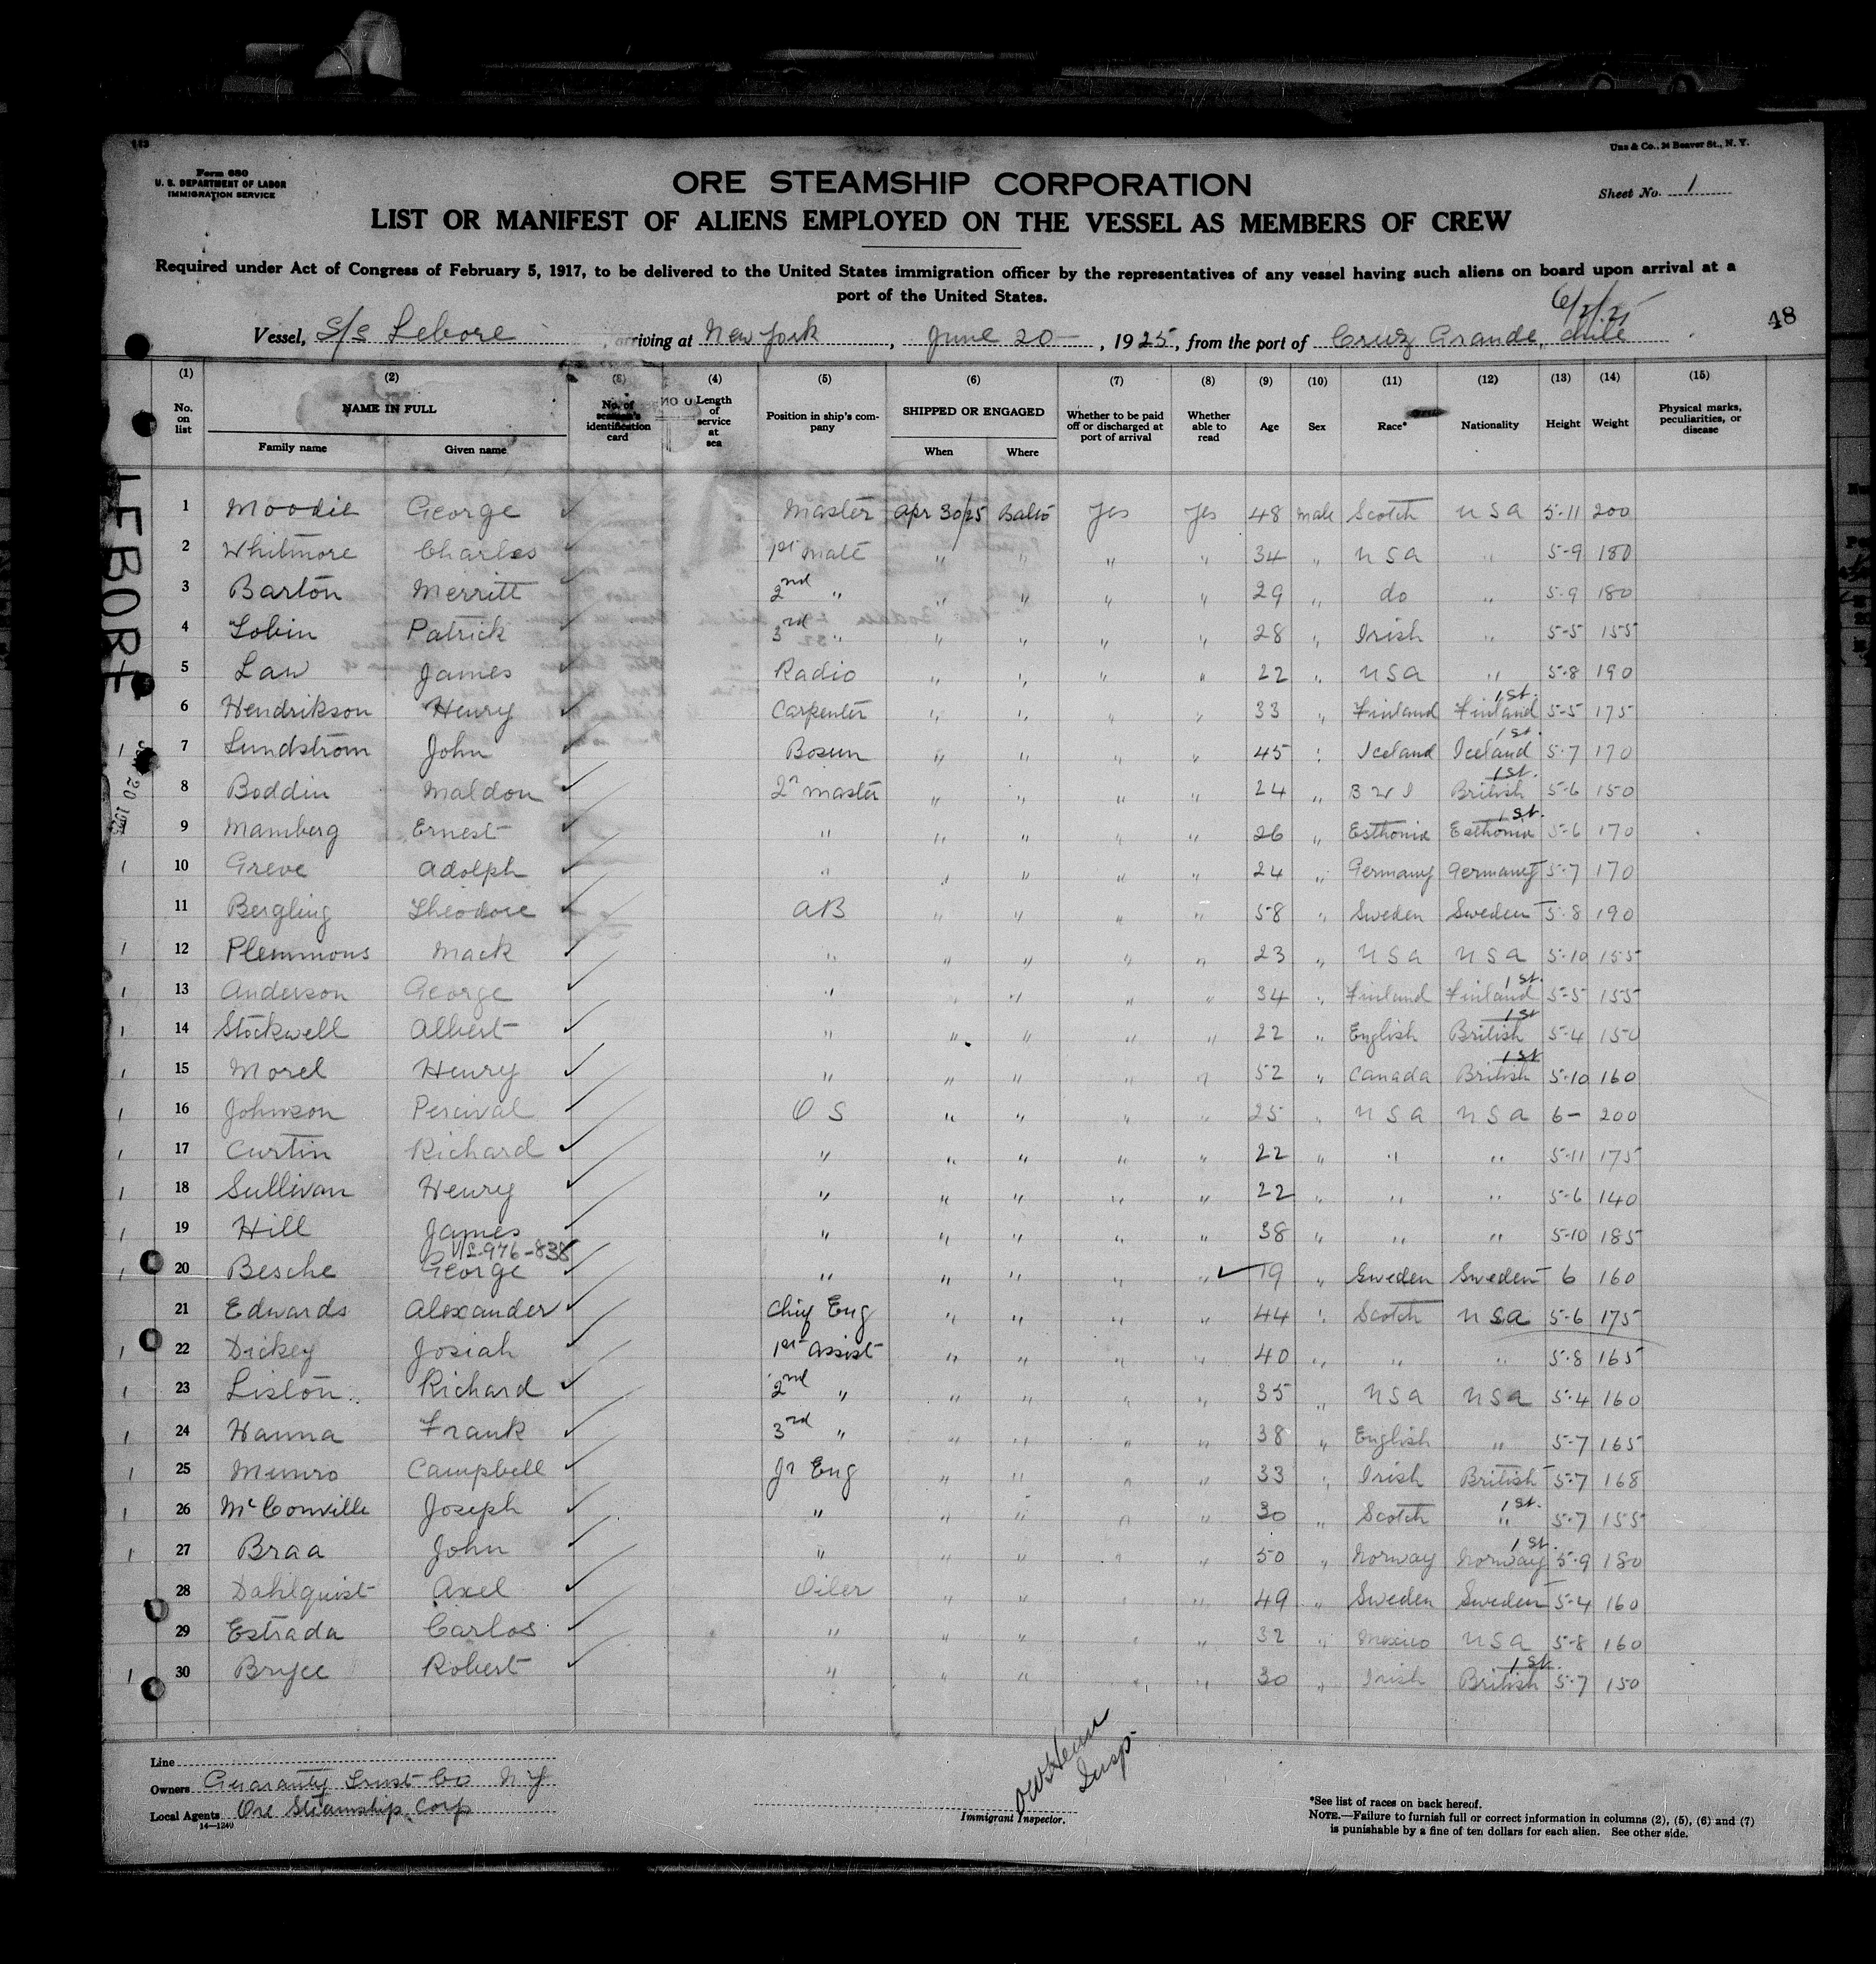 143
Unz & Co., 24 Beaver St., N. Y.
Form 680
U. S. DEPARTMENT OF LABOR
IMMIGRATION SERVICE
ORE STEAMSHIP CORPORATION
Sheet No. 1
LIST OR MANIFEST OF ALIENS EMPLOYED ON THE VESSEL AS MEMBERS OF CREW
Required under Act of Congress of February 5, 1917, to be delivered to the United States immigration officer by the representatives of any vessel having such aliens on board upon arrival at a
port of the United States.
48
Vessel, S/S Lebore arriving at New York, June 20, 1925, from the port of Cruz Grande, Chile
(1) (2) (3) (4) (5) (6) (7) (8) (9) (10) (11) (12) (13) (14) (15)
No. on list NAME IN FULL No. of seaman's identification card Length of service at sea Position in ship's company SHIPPED OR ENGAGED Whether to be paid off or discharged at port of arrival Whether able to read Age Sex Race* Nationality Height Weight Physical marks, peculiarities, or disease
Family name Given name When Where
LEBORE
1 Moodie George Master Apr 30/25 Balto Yes Yes 48 male Scotch USA 5-11 200
2 Whitmore Charles 1st Mate " " " " 34 " USA " 5-9 180
3 Barton Merritt 2nd " " " " " 29 " do " 5-9 180
4 Tobin Patrick 3rd " " " " " 28 " Irish " 5-5 155
5 Law James Radio " " " " 22 " USA " 5-8 190
6 Hendrikson Henry Carpenter " " " " 33 " Finland Finland 1st. 5-5 175
7 Lundstrom John Bosun " " " " 45 " Iceland Iceland 1st. 5-7 170
8 Boddin Maldon 2n master " " " " 24 " B W I British 1st. 5-6 150
9 Mamberg Ernest " " " " " 26 " Esthonia Esthonia 1st. 5-6 170
10 Greve Adolph " " " " " 24 " Germany Germany 5-7 170
11 Bergling Theodore AB " " " " 58 " Sweden Sweden 5-8 190
12 Plemmons Mack " " " " " 23 " USA USA 5-10 155
13 Anderson George " " " " " 34 " Finland Finland 1st. 5-5 155
14 Stockwell Albert " " " " " 22 " English British 1st 5-4 150
15 Morel Henry " " " " " 52 " Canada British 1st 5-10 160
16 Johnson Percival O S " " " " 25 " USA USA 6- 200
17 Curtin Richard " " " " " 22 " " " 5-11 175
18 Sullivan Henry " " " " " 22 " " " 5-6 140
19 Hill James " " " " " 38 " " " 5-10 185
976-838
20 Besche George " " " " " 19 " Sweden Sweden 6 160
21 Edwards Alexander Chief Eng " " " " 44 " Scotch USA 5-6 175
22 Dickey Josiah 1st assist " " " " 40 " " " 5-8 165
23 Liston Richard 2nd " " " " " 35 " USA USA 5-4 160
24 Hanna Frank 3rd " " " " " 38 " English " 5-7 165
25 Munro Campbell Jr Eng " " " " 33 " Irish British 5-7 168
26 McConville Joseph " " " " " 30 " Scotch " 1st. 5-7 155
27 Braa John " " " " " 50 " Norway Norway 1st. 5-9 180
28 Dahlquist Axel Oiler " " " " 49 " Sweden Sweden 5-4 160
29 Estrada Carlos " " " " " 32 " Mexico USA 5-8 160
30 Bryce Robert " " " " " 30 " Irish British 1st. 5-7 150
Line
Owners Guaranty Trust Co N Y
Local Agents Ore Steamship Corp
14—1240
Insp
Immigrant Inspector.
*See list of races on back hereof.
NOTE.—Failure to furnish full or correct information in columns (2), (5), (6) and (7)
is punishable by a fine of ten dollars for each alien. See other side.